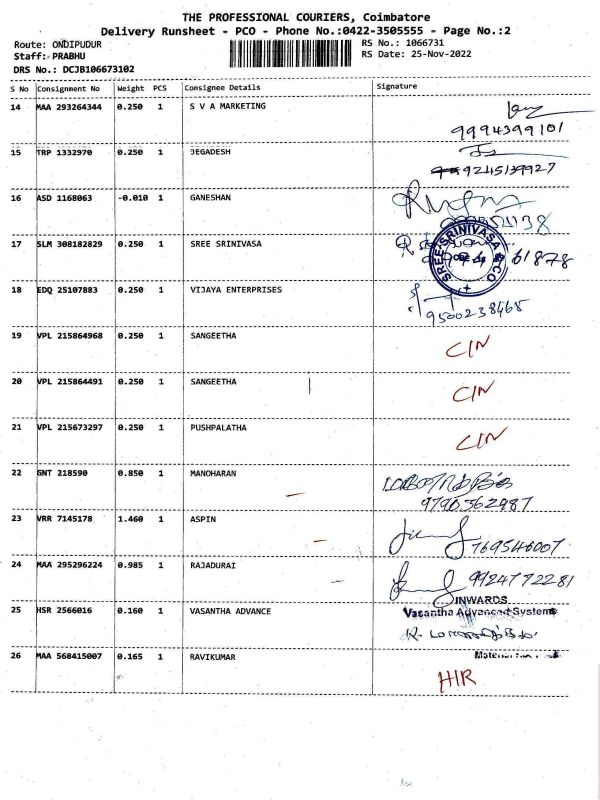 THE PROFESSIONAL COURIERS, Coimbatore
Delivery Runsheet - PCO - Phone No.:0422-3505555 - Page No.:2
Route: ONDIPUDUR RS No.: 1066731
Staff: PRABHU RS Date: 25-Nov-2022
DRS No.: DCJB106673102
S No Consignment No Weight PCS Consignee Details Signature
14 MAA 293264344 0.250 1 S V A MARKETING
9994399101
15 TRP 1332970 0.250 1 JEGADESH
9245139927
16 ASD 1168063 -0.010 1 GANESHAN
17 SLM 308182829 0.250 1 SREE SRINIVASA
SREE SRINIVASA & CO
61878
18 EDQ 25107883 0.250 1 VIJAYA ENTERPRISES
9500238465
19 VPL 215864968 0.250 1 SANGEETHA
CIN
20 VPL 215864491 0.250 1 SANGEETHA
CIN
21 VPL 215673297 0.250 1 PUSHPALATHA
CIN
22 GNT 218590 0.850 1 MANOHARAN
9790562987
23 VRR 7145178 1.460 1 ASPIN
769546007
24 MAA 295296224 0.985 1 RAJADURAI
9924772281
INWARDS
25 HSR 2566016 0.160 1 VASANTHA ADVANCE Vasantha Advanced Systems
26 MAA 568415007 0.165 1 RAVIKUMAR
HIR